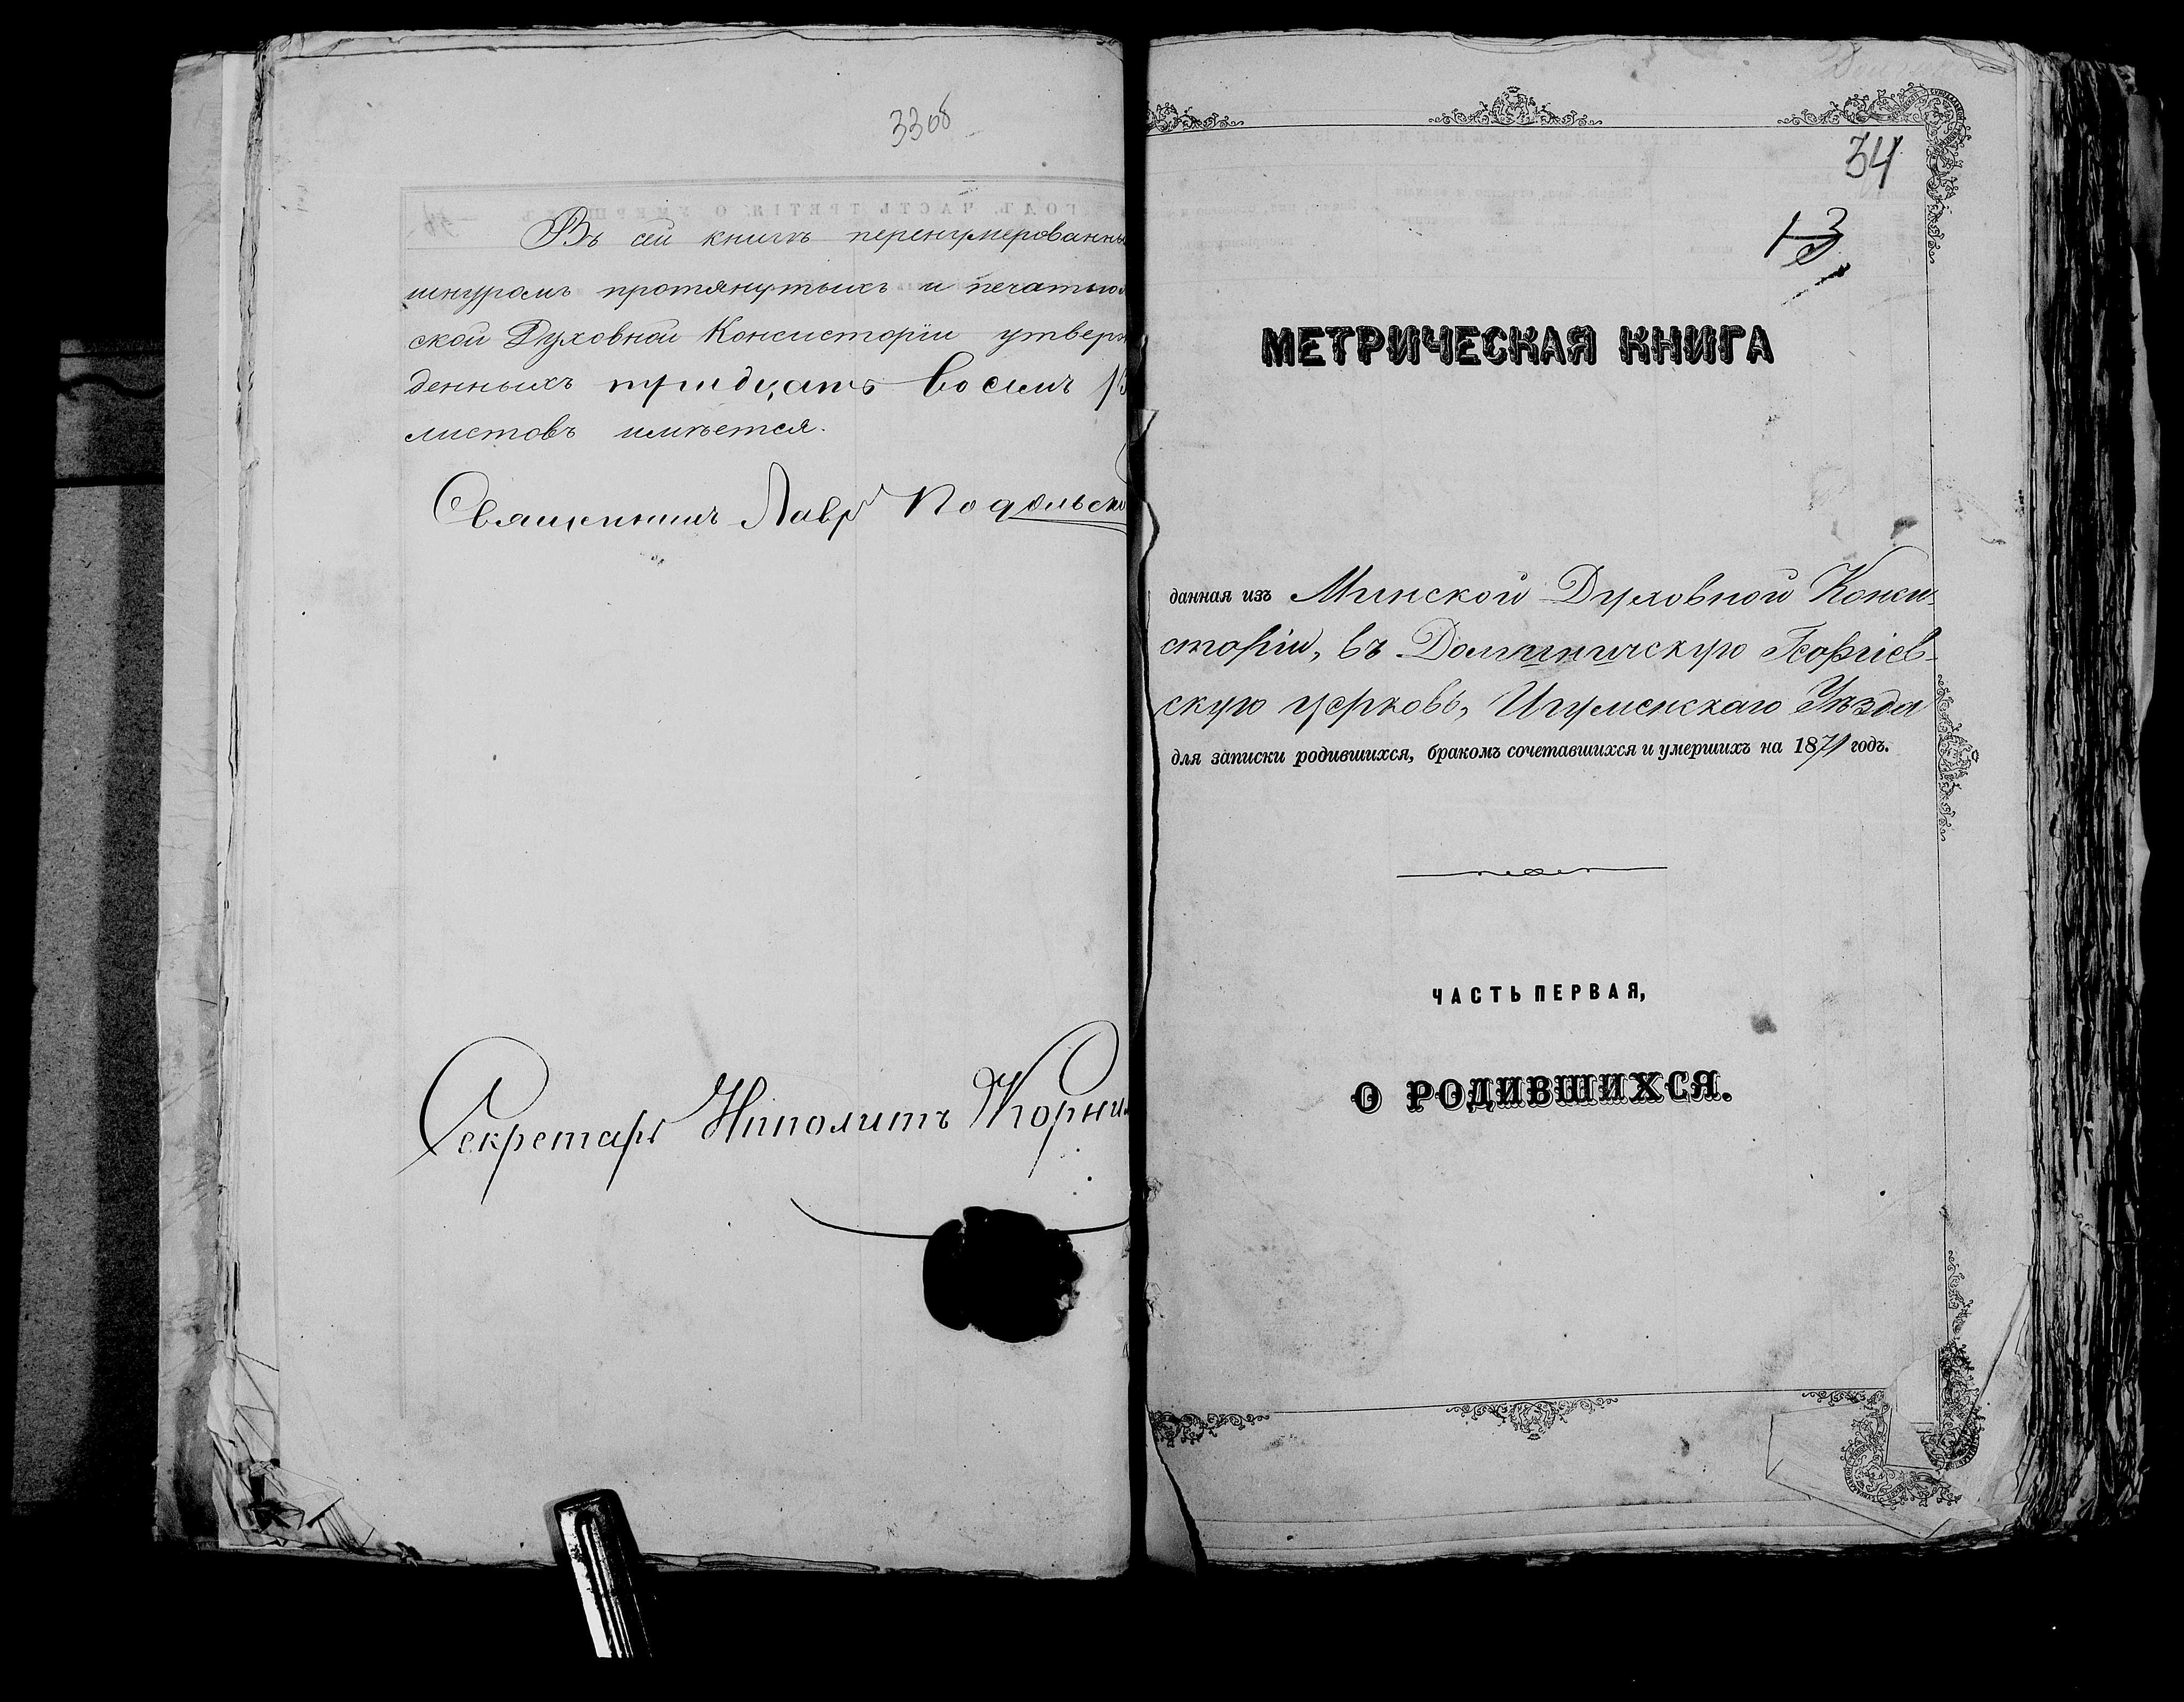 3308
Въ сей книгѣ перенумерованны
шнуромъ протянутыхъ и печатью
ской Духовной Консисторіи утверж
денныхъ тридцать восемь
листовъ имѣется.
Священникъ Лавр Подольск
Секретарь Иполитъ
34
13
МЕТРИЧЕСКАЯ КНИГА
данная изъ Минской Духовной Конси-
сторіи, въ Георгіев-
скую церковь, Игуменскаго Уѣзда
для записки родившихся, бракомъ сочетавшихся и умершихъ на 1871 годъ.
ЧАСТЬ ПЕРВАЯ,
О РОДИВШИХСЯ.